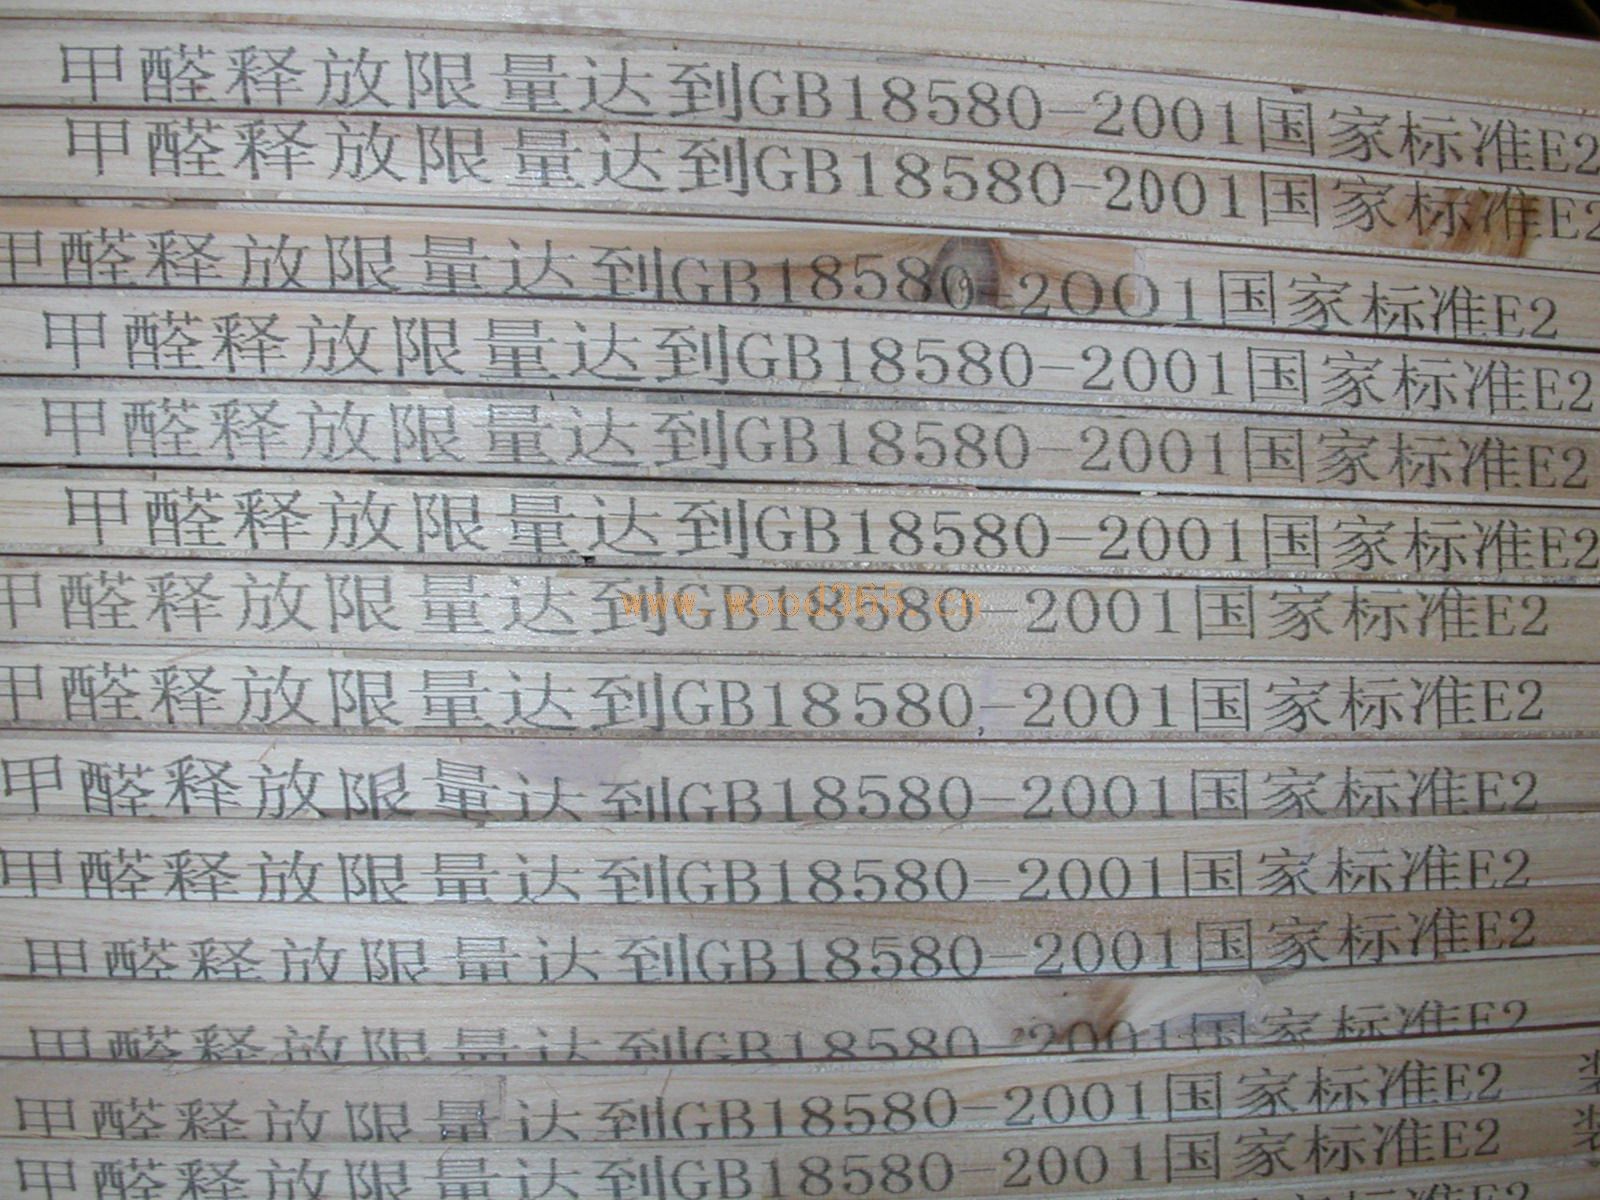 甲醛释放限量达到GB18580-2001国家标准E2
甲醛释放限量达到GB18580-2001国家标准E2
甲醛释放限量达到GB18580-2001国家标准E2
甲醛释放限量达到GB18580-2001国家标准E2
甲醛释放限量达到GB18580-2001国家标准E2
甲醛释放限量达到GB18580-2001国家标准E2
甲醛释放限量达到GB18580-2001国家标准E2
www.wood365.cn
甲醛释放限量达到GB18580-2001国家标准E2
甲醛释放限量达到GB18580-2001国家标准E2
甲醛释放限量达到GB18580-2001国家标准E2
甲醛释放限量达到GB18580-2001国家标准E2
甲醛释放限量达到GB18580-2001国家标准E2
甲醛释放限量达到GB18580-2001国家标准E2
甲醛释放限量达到GB18580-2001国家标准E2